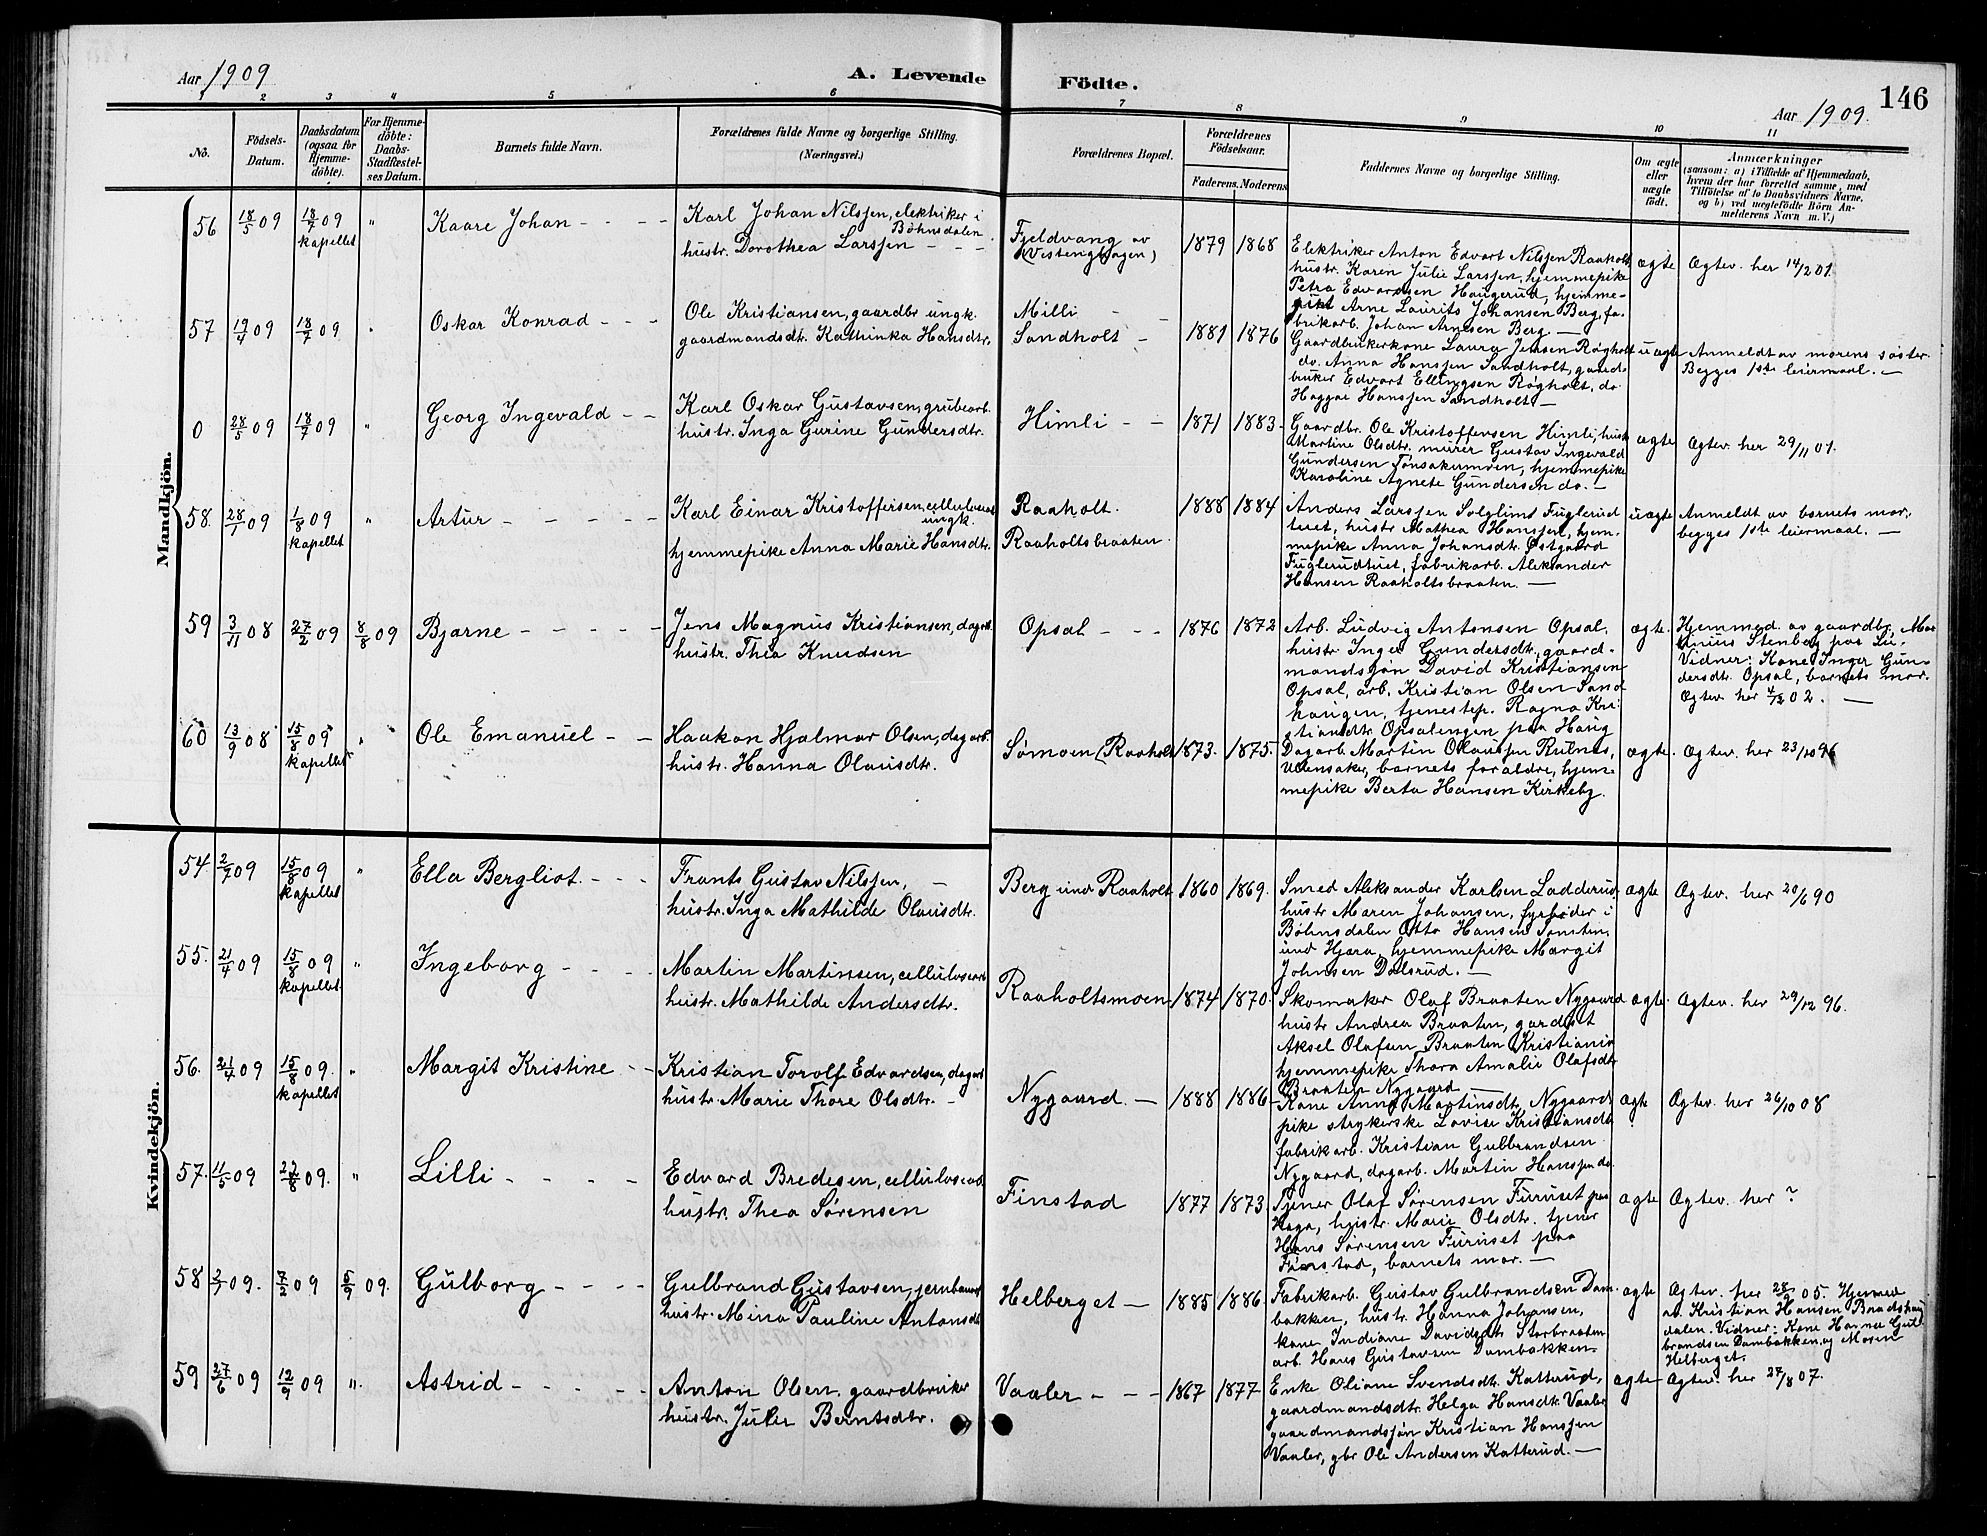 Aar 1909
A. Levende Födte.
146
Aar 1909.
1 2 3 4 5 6 7 8 9 10 11
No.
Födsels-
Datum.
Daabsdatum
(ogsaa for
Hjemme-
döbte).
For Hjemme-
döbte:
Daabs-
Stadfæstel-
ses Datum.
Barnets fulde Navn.
Forældrenes fulde Navne og borgerlige Stilling.
(Næringsvei.)
Forældrenes Bopæl.
Forældrenes
Födselsaar.
Faderens. Moderens.
Faddernes Navne og borgerlige Stilling.
Om ægte
eller
uægte
födt.
Anmærkninger
(saasom: a) i Tilfælde af Hjemmedaab,
hvem der har forrettet samme, med
Tilföielse af to Daabsvidners Navne,
og b) ved uegtefödte Börn An-
melderens Navn m. V.)
Mandkjön.
56 18/5 09 18/7 09 " Kaare Johan - - - -
kapellet
Karl Johan Nilssen, elektriker i
Bøhnsdalen
hustr. Dorothea Larssen - - -
Fjeldvang av
(Vistenghagen)
1879 1868
Elektriker Anton Edvart Nilssen Raaholt,
hustr. Karen Julie Larssen, hjemmepike
Petra Edvardsen Haugerud, hjemme-
pike Arne Laurits Johansen Berg, fa-
brikarb. Johan Arnesen Berg. —
ægte Ægtev. her 14/2 01.
57 19/4 09 18/7 09 " Oskar Konrad - - -
Ole Kristiansen, gaardbr ungk.
gaardmandsdt. Kathinka Hansdtr.
Milli - -
Sandholt -
1881 1876
Gaardbrukerkone Laura Jensen Røgholt
do. Anna Hanssen Sandholt, gaard-
bruker Edvart Ellingsen Røgholt, do
Haggai Hanssen Sandholt —
uægte Anmeldt av morens søster.
Begges 1ste leiermaal. —
0 28/5 09 18/7 09 " Georg Ingevald - -
Karl Oskar Gustavsen, grubearb.
hustr. Inga Gurine Gundersdtr.
Himli - -
1871 1883.
Gaardbr. Ole Kristoffersen Himli, hustr
Martine Olsdtr. murer Gustav Ingevald
Gundersen Tønsakermoen, hjemmepike
Karoline Agnete Gundersen do. —
ægte Ægtev. her 29/11 01.
58. 28/1 09 1/8 09 " Artur - - - - -
kapellet
Karl Einar Kristoffersen, cellulosearb
ungk.
hjemmepike Anna Marie Hansdtr.
Raaholt.
Raaholtsbraaten.
1888 1884
Anders Larssen Solglimt Fuglerud
tuet, hustr. Mathea Hanssen, hjem-
mepike Anna Johansdtr. Østgaard
Fuglerudtuet, fabrikarb. Aleksander
Hansen Raaholtsbraaten. —
uægte Anmeldt av barnets mor,
begges 1ste leiermaal. —
59 3/11 08 27/2 09 8/8 09 Bjarne - - - - -
Jens Magnus Kristiansen, dagarb.
hustr. Thea Knudsen
Opsal - - -
1876 1872
Arb. Ludvig Antonsen Opsal,
hustr. Inger Gundersdtr, gaard-
mandssøn David Kristiansen
Opsal, arb. Kristian Olsen Sand
haugen, tjenestep. Ragna Kri-
stiandtr. Opsalengen paa Haug
ægte. Hjemmed. av gaardbr. Mar
tinius Stenberg paa Li.
Vidner: Kone Inger Gun-
dersdtr. Opsal, barnets mor.
Ægtev. her 4/12 02. —
60 13/9 08 15/8 09 " Ole Emanuel - -
kapellet
Haakon Hjalmar Olsen, dagarb.
hustr. Hanna Olausdtr.
Sømoen (Raaholt
1873. 1875.
Dagarb. Martin Olaussen Rulnes,
Ullensaker, barnets forældre, hjem-
mepike Berta Hansen Kirkeby.
ægte. Ægtev. her 23/10 96
Kvindekjön.
54 2/7 09 15/8 09 " Ella Bergliot. - - -
kapellet
Frants Gustav Nilssen, —
hustr. Inga Mathilde Olausdtr.
Berg und Raaholt
1860 1869.
Smed Aleksander Karlsen Ladderud,
hustr Maren Johansen, fyrbøder i
Bøhnsdalen Otto Hansen Tomten,
und Hjera, hjemmepike Margit
Johnsen Dalsrud. —
ægte Ægtev. her 20/6 90
55. 21/4 09 15/8 09 " Ingeborg - - - -
kapellet
Martin Martinsen, cellulosearb
hustr. Mathilde Andersdtr.
Raaholtsmoen
1874 1870.
Skomaker Olaf Braaten Nygaard
hustr Andrea Braaten, gardist
Aksel Olafsen Braaten Kristiania
hjemmepike Thora Amalie Olafsdtr
Braaten Nygaard —
ægte. Ægtev. her 29/12 96.
56. 21/4 09 15/8 09. " Margit Kristine - -
kapellet
Kristian Torolf Edvardsen, dagarb
hustr. Marie Thore Olsdtr. -
Nygaard. —
1888 1886-
Kone Anna Martinsdtr. Nygaard
pike strykerske Lovise Kristiansdtr
fabrikarb. Kristian Gulbrandsen
Nygaard, dagarb. Martin Hanssen do.
ægte Ægtev. her 26/10 08
57. 11/5 09 22/8 09. " Lilli - - - -
Edvard Bredesen, cellulosearb.
hustr. Thea Sørensen
Finstad
1877 1873
Tjener Olaf Sørensen Furuset paa
Haga, hustr. Marie Olsdtr. tjener
Hans Sørensen Furuset paa
Finstad, barnets mor. —
ægte Ægtev. her ?
58 2/7 09. 7/2 09 5/9 09. Gulborg - - - -
Gulbrand Gustavsen, jernbanearb
hustr. Mina Pauline Antonsdt
Helberget —
1885 1886.
Fabrikarb. Gustav Gulbrandsen Dam-
bakken, hustr. Hanna Johansen,
kone Indiane Davidsdtr. Storbraaten
arb. Hans Gustavsen Dambakken.
ægte Ægtev. her 28/9 05. Hjemmed
av Kristian Hansen Baadshaug
dalen. Vidner: Kone Hanna Gul-
brandsen Dambakken, og Moren
Helberget.
59 27/6 09 12/9 09 ". Astrid - - - - -
Anton Olsen, gaardbruker
hustr. Julie Berntsdtr.
Vaaler - - -
1867 1877
Enke Oliane Svendsdtr. Katterud,
gaardmandsdtr. Helga Hansdtr. Vaaler
gaardmandssøn Kristian Hanssen
Vaaler, gbr Ole Andersen Katterud. —
ægte Ægtev. her 27/8 07.